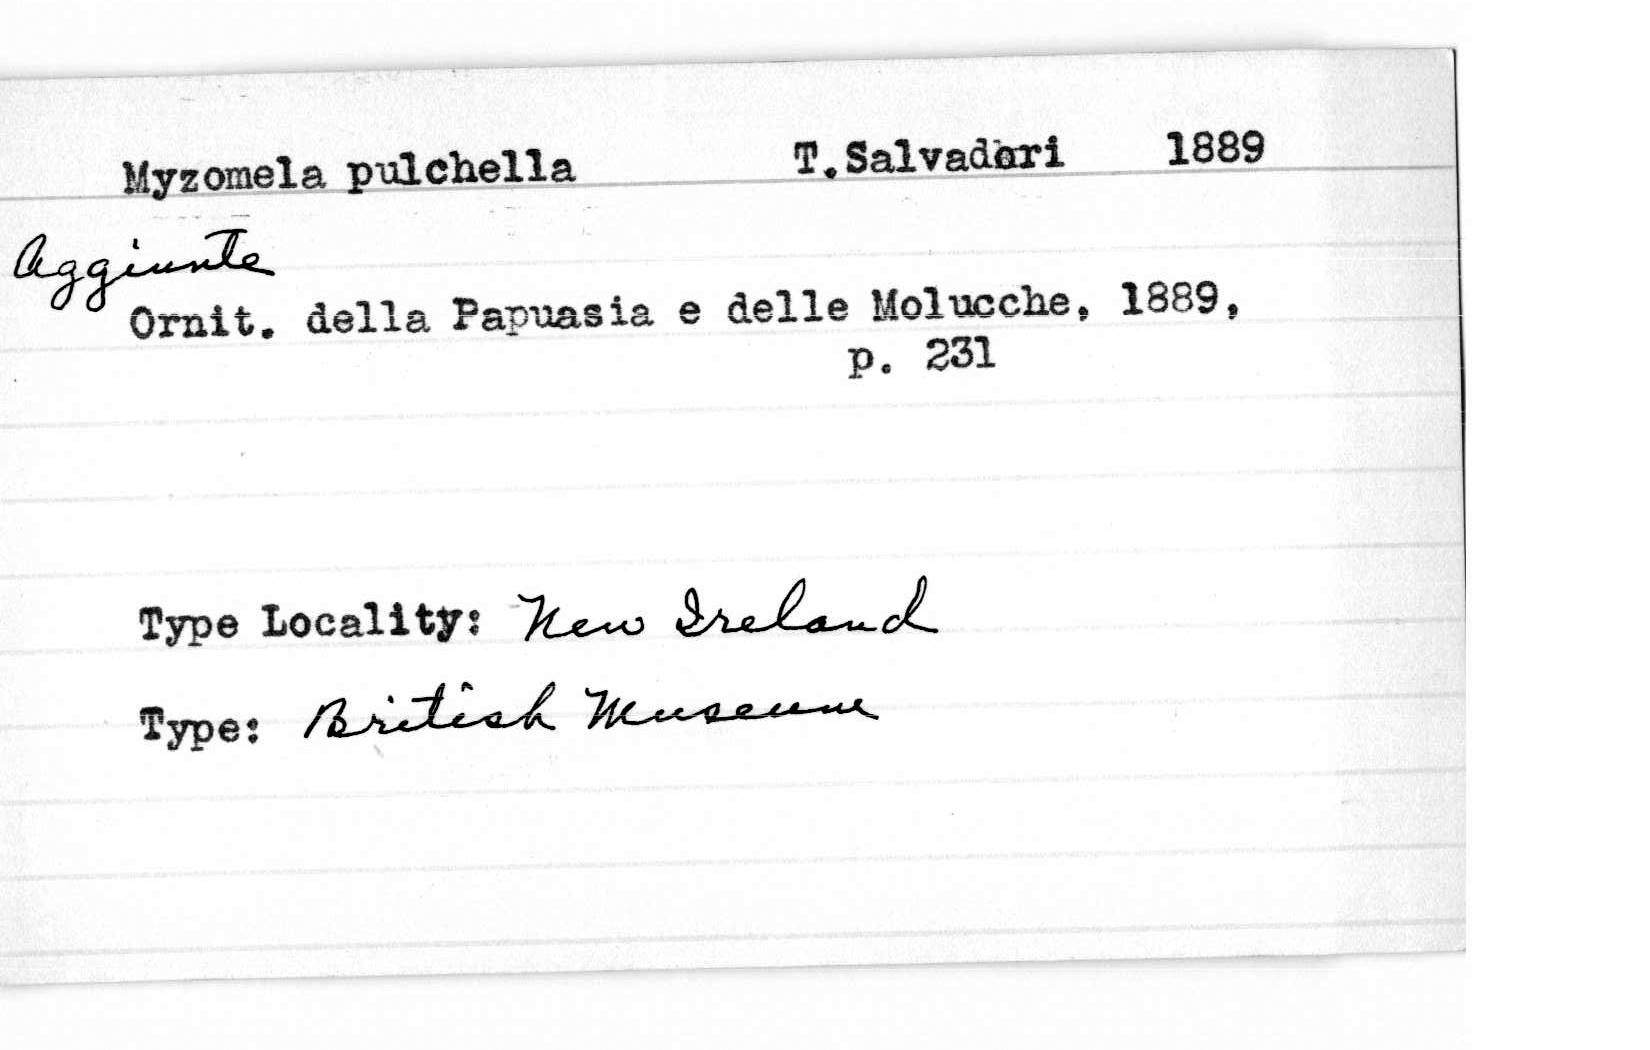 Myzomela pulchella T.Salvadori 1889
Aggiunte
Ornit. della Papuasia e delle Molucche, 1889,
p. 231
Type Locality: New Ireland
Type: British Museum